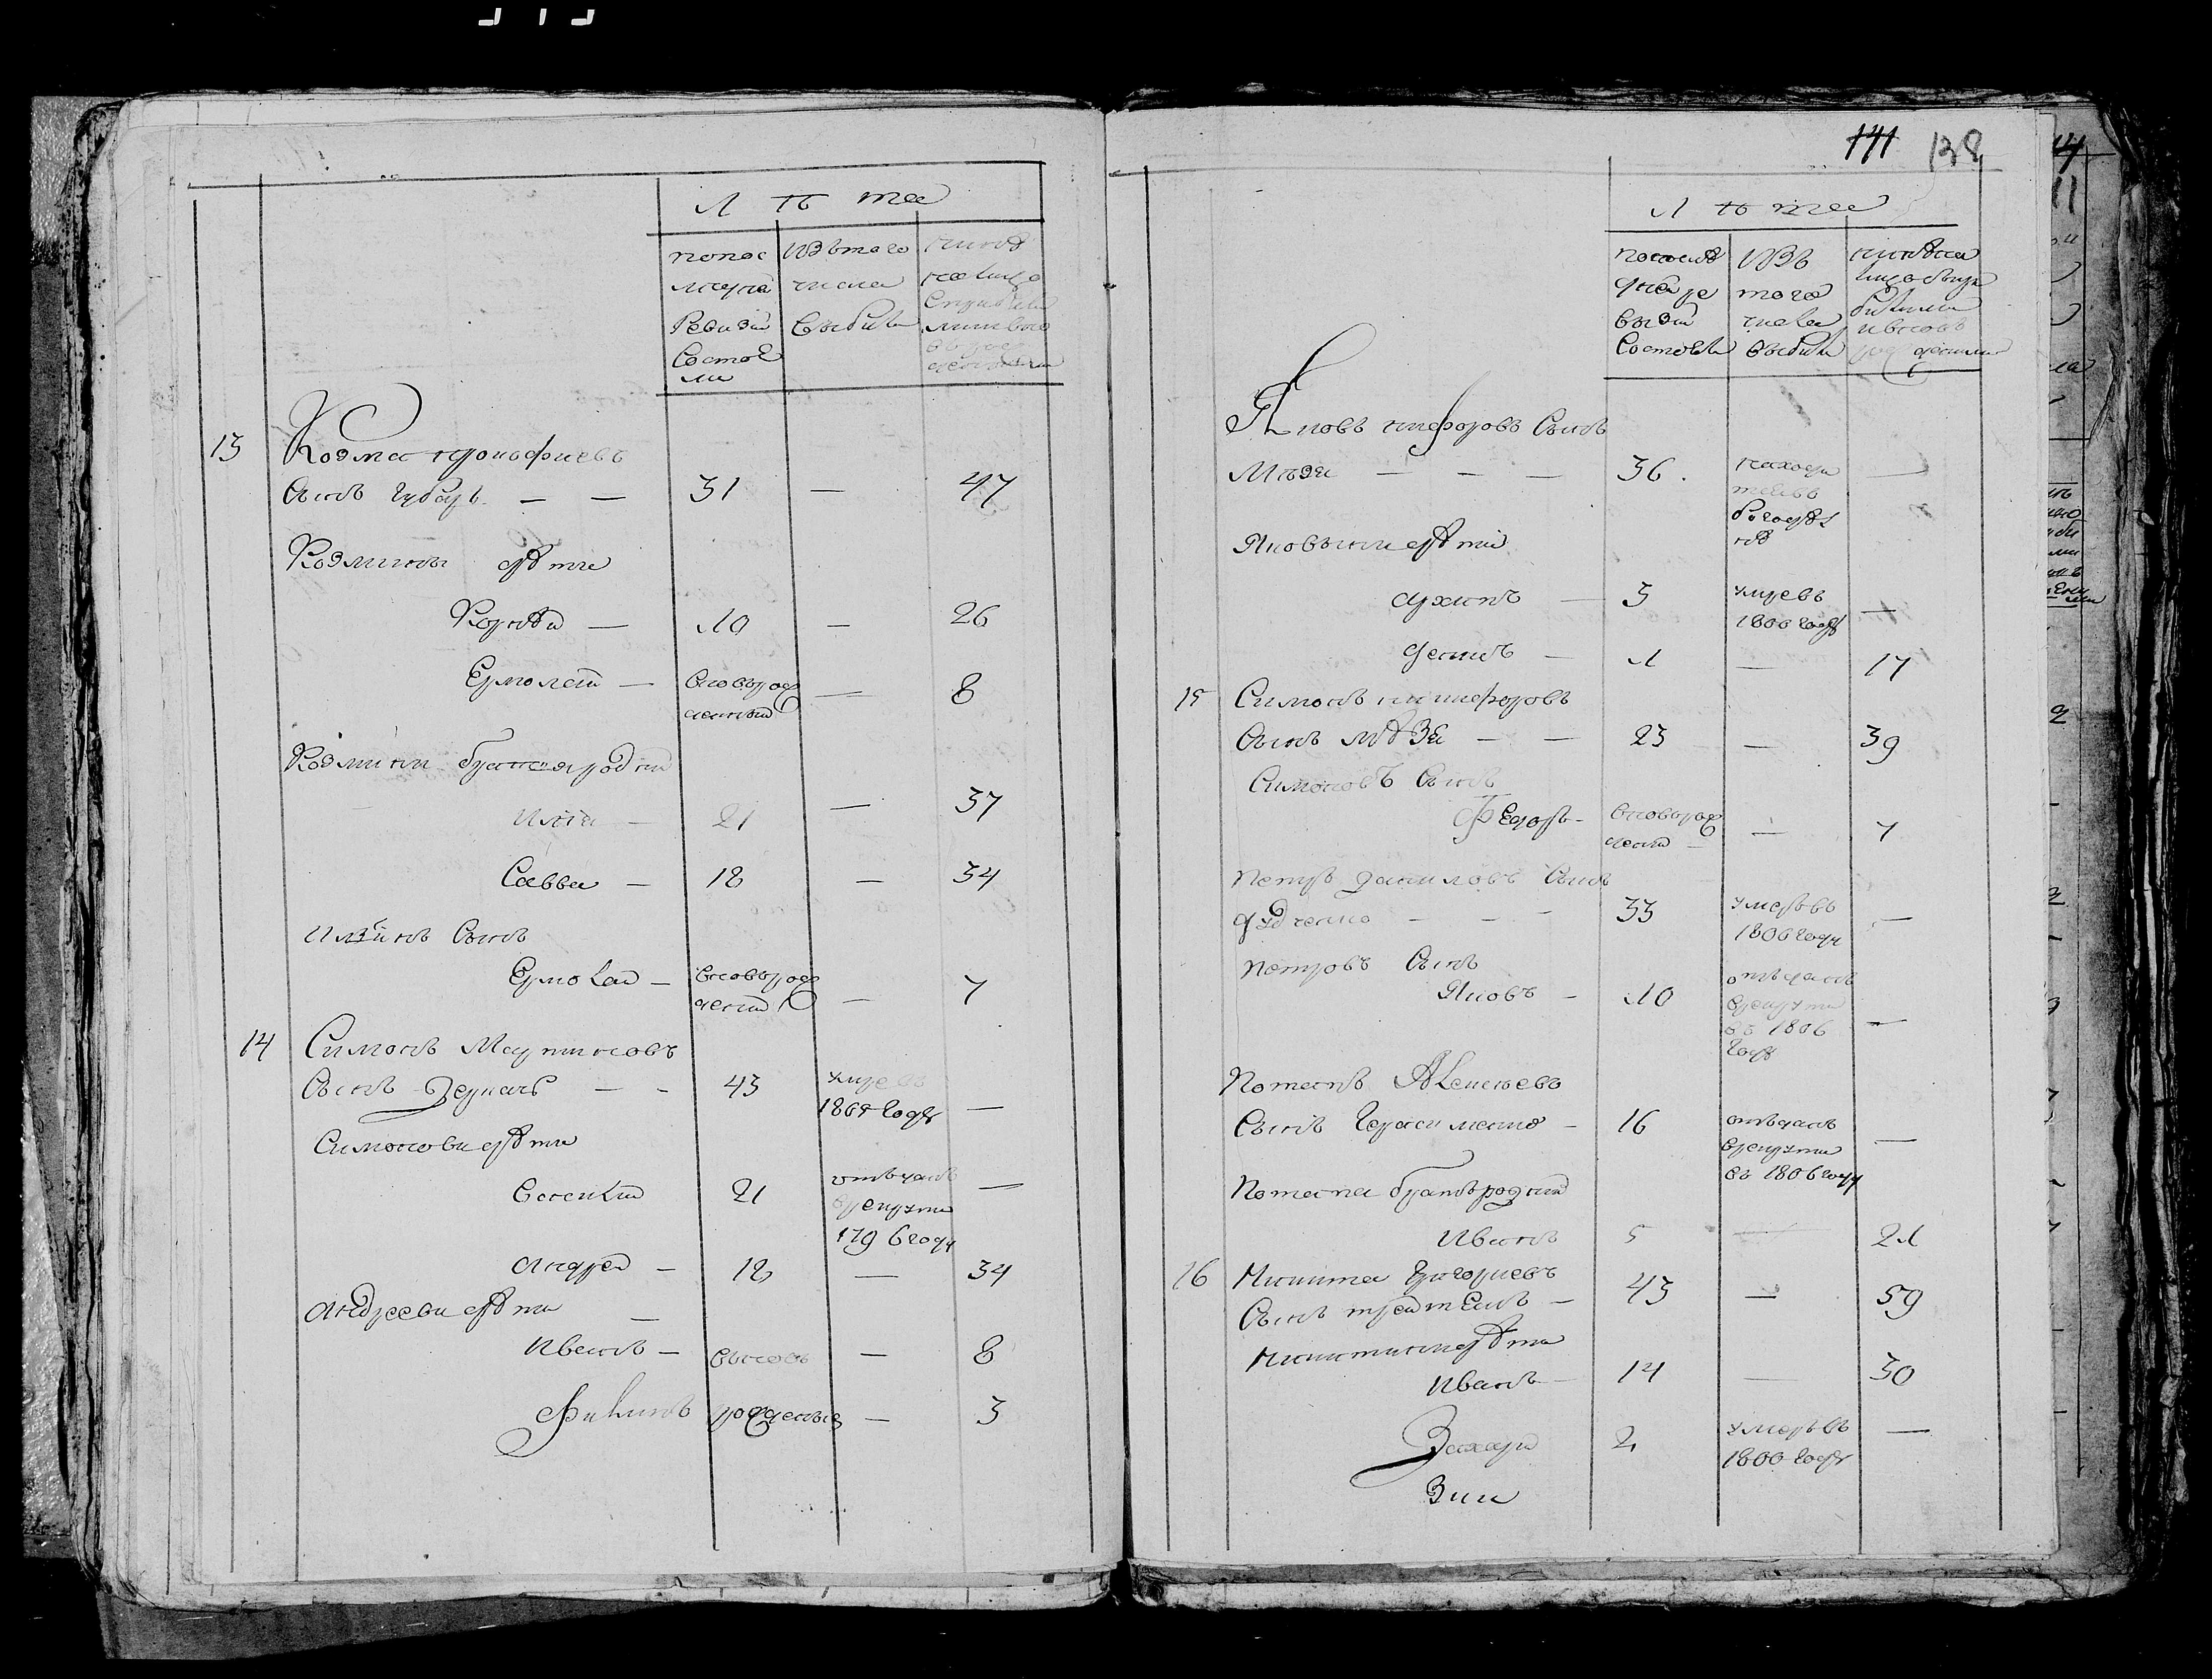 Лѣта
попос
ледней
Ревизїи
Состоя
ли
изътого
числа
выбыли
нынѣ
налицо
13 Козма прокофиевъ
Сынъ Губарь — — 31 — 47
Козмины дѣти
Корнѣй — 10 — 26
Ермолай — вновьрож
денный — 8
Козмини братияродни
Илїя — 21 — 37
Савва — 18 — 34
Илїинъ Сынъ
Ермолай — вновьрож
денны — 7
14 Симонъ Мартиновъ
Сынъ Деркачъ — - 43 умревъ
1805 году —
Симонови дѣти
Василий 21 отъданъ
врекрути
1796 году —
Андрей — 18 — 34
Андрееви дѣти —
Иванъ — вновь — 8
Филипъ рожденые — 3
141 138
Лѣта
попослѣ
дней ре
визїи
Состояли
изъ
того
числа
выбыли
Яковъ никифоровъ Сынъ
Мѣзи — — — 36 . находи
—
Яковыни дѣти
Архипъ — 3 умревъ
1800 году —
Денисъ — 1 — 17
15 Симонъ никифоровъ
Сынъ Мѣзи — — 23 — 39
Симоновъ Сынъ
Федоръ - вновьрож
дении — 7
Петръ Даниловъ Сынъ
дѣдченко — — — 33 умеръвъ
1806 году —
Петровъ Сынъ
Яковъ — 10 отъданъ
врекрути
въ 1806
году —
Потапъ Алексѣевъ
Сынъ Герасименко — 16 отъданъ
врекрути
въ 1806 году —
Потапа братъродний
Иванъ 5 — 21
16 Никита Григориевъ
Сынъ — 43 — 59
Никитини дѣти
Иванъ — 14 — 30
Захари 2 умеръвъ
1800 году —